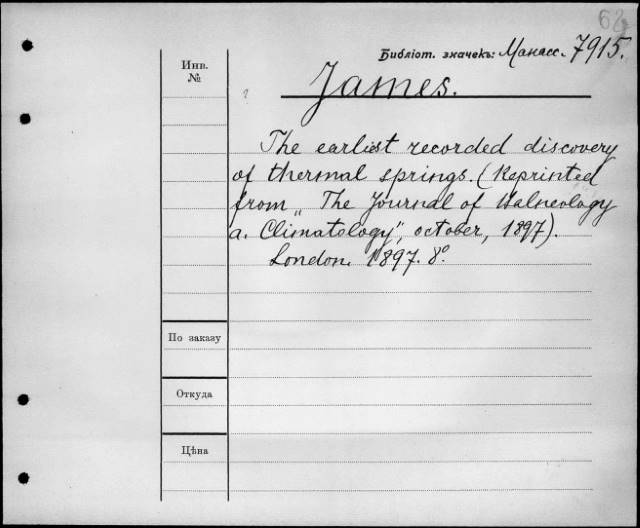 62
Библіот. значекъ: Манасс. 7915.
Инв.
№
?
James.
The earliest recorded discovery
of thermal springs. (Reprinted
from „ The Journal of Balneology
a. Climatology", october, 1897).
London. 1897. 8°
По заказу
Откуда
Цѣна